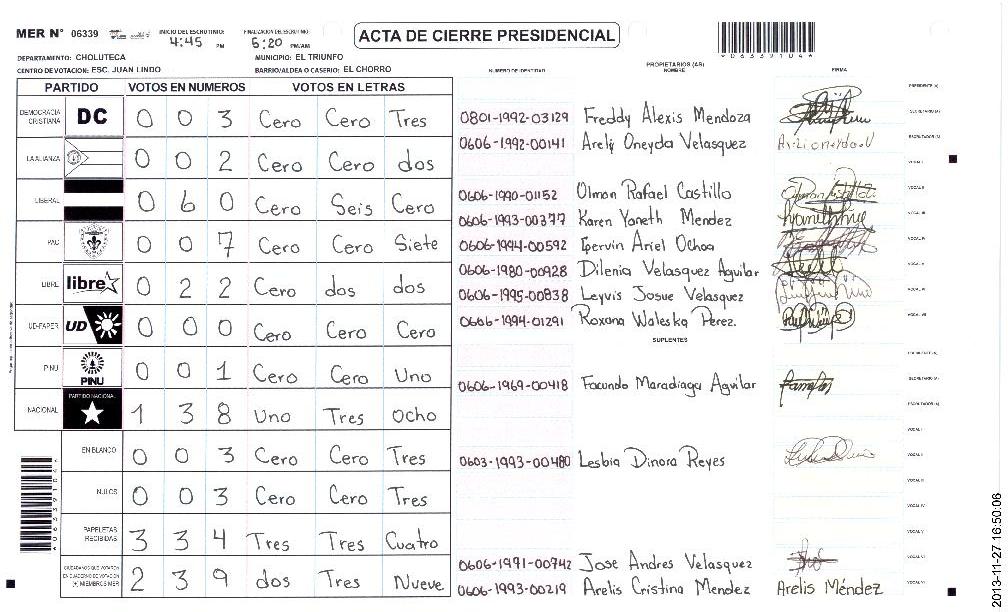 MER N° 06339
INICIO DEL ESCRUTINIO: 4:45 PM
FINALIZACION DEL ESCRUTINIO: 5:20 PM/AM
ACTA DE CIERRE PRESIDENCIAL
06339104
DEPARTAMENTO: CHOLUTECA
MUNICIPIO: EL TRIUNFO
CENTRO DE VOTACION: ESC. JUAN LINDO
BARRIO/ALDEA O CASERIO: EL CHORRO
PARTIDO VOTOS EN NUMEROS VOTOS EN LETRAS
DEMOCRACIA CRISTIANA DC 0 0 3 Cero Cero Tres
LA ALIANZA 0 0 2 Cero Cero dos
LIBERAL 0 6 0 Cero Seis Cero
PAC 0 0 7 Cero Cero Siete
LIBRE libre 0 2 2 Cero dos dos
UD-FAPER UD 0 0 0 Cero Cero Cero
PINU PINU 0 0 1 Cero Cero Uno
NACIONAL PARTIDO NACIONAL 1 3 8 Uno Tres Ocho
EN BLANCO 0 0 3 Cero Cero Tres
NULOS 0 0 3 Cero Cero Tres
PAPELETAS RECIBIDAS 3 3 4 Tres Tres Cuatro
CIUDADANOS QUE VOTARON EN CUADERNO DE VOTACION (+) MIEMBROS MER 2 3 9 dos Tres Nueve
NUMERO DE IDENTIDAD
PROPIETARIOS (AS)
NOMBRE
FIRMA
PRESIDENTE (A)
0801-1992-03129 Freddy Alexis Mendoza SECRETARIO (A)
0606-1992-00141 Arely Oneyda Velasquez ESCRUTADOR (A)
VOCAL I
0606-1990-01152 Olman Rafael Castillo VOCAL II
0606-1993-00377 Karen Yaneth Mendez VOCAL III
0606-1994-00592 Ariel Ochoa VOCAL IV
0606-1980-00928 Dilenia Velasquez Aguilar VOCAL V
0606-1995-00838 Leyvis Josue Velasquez VOCAL VI
0606-1994-01291 Roxana Waleska Perez. VOCAL VII
SUPLENTES
0606-1969-00418 Facundo Maradiaga Aguilar SECRETARIO (A)
ESCRUTADOR (A)
VOCAL I
0603-1993-00480 Lesbia Dinora Reyes VOCAL II
VOCAL III
VOCAL IV
VOCAL V
0606-1991-00742 Jose Andres Velasquez VOCAL VI
0606-1993-00219 Arelis Cristina Mendez Arelis Méndez VOCAL VII
06339104
2013-11-27 16:50:06